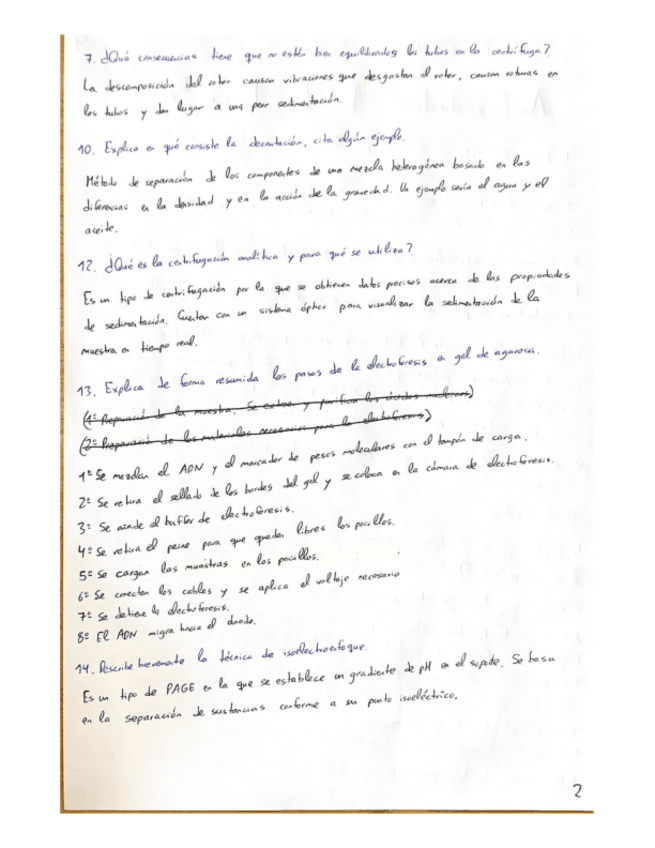 7. ¿Qué consecuencias tiene que no estén bien equilibrados los tubos en la centrífuga?
La descomposición del rotor causan vibraciones que desgastan el rotor, causan roturas en
los tubos y dan lugar a una peor sedimentación.
10. Explica en qué consiste la decantación, cita algún ejemplo.
Método de separación de los componentes de una mezcla heterogénea basado en las
diferencias en la densidad y en la acción de la gravedad. Un ejemplo sería el agua y el
aceite.
12. ¿Qué es la centrifugación analítica y para qué se utiliza?
Es un tipo de centrifugación por la que se obtienen datos precisos acerca de las propiedades
de sedimentación. Cuentan con un sistema óptico para visualizar la sedimentación de la
muestra en tiempo real.
13. Explica de forma resumida los pasos de la electroforesis en gel de agarosa.
(1º Preparación de la muestra. Se extrae y purifica los ácidos nucleicos)
(2º Preparación de los materiales necesarios para la electroforesis)
1º Se mezclan el ADN y el marcador de pesos moleculares con el tampón de carga.
2º Se retira el sellado de los bordes del gel y se coloca en la cámara de electroforesis.
3º Se añade el buffer de electroforesis.
4º Se retira el peine para que queden libres los pocillos.
5º Se cargan las muestras en los pocillos.
6º Se conectan los cables y se aplica el voltaje necesario
7º Se detiene la electroforesis.
8º El ADN migra hacia el ánodo.
14. Describe brevemente la técnica de isoelectroenfoque.
Es un tipo de PAGE en la que se establece un gradiente de pH en el soporte. Se basa
en la separación de sustancias conforme a su punto isoeléctrico.
2